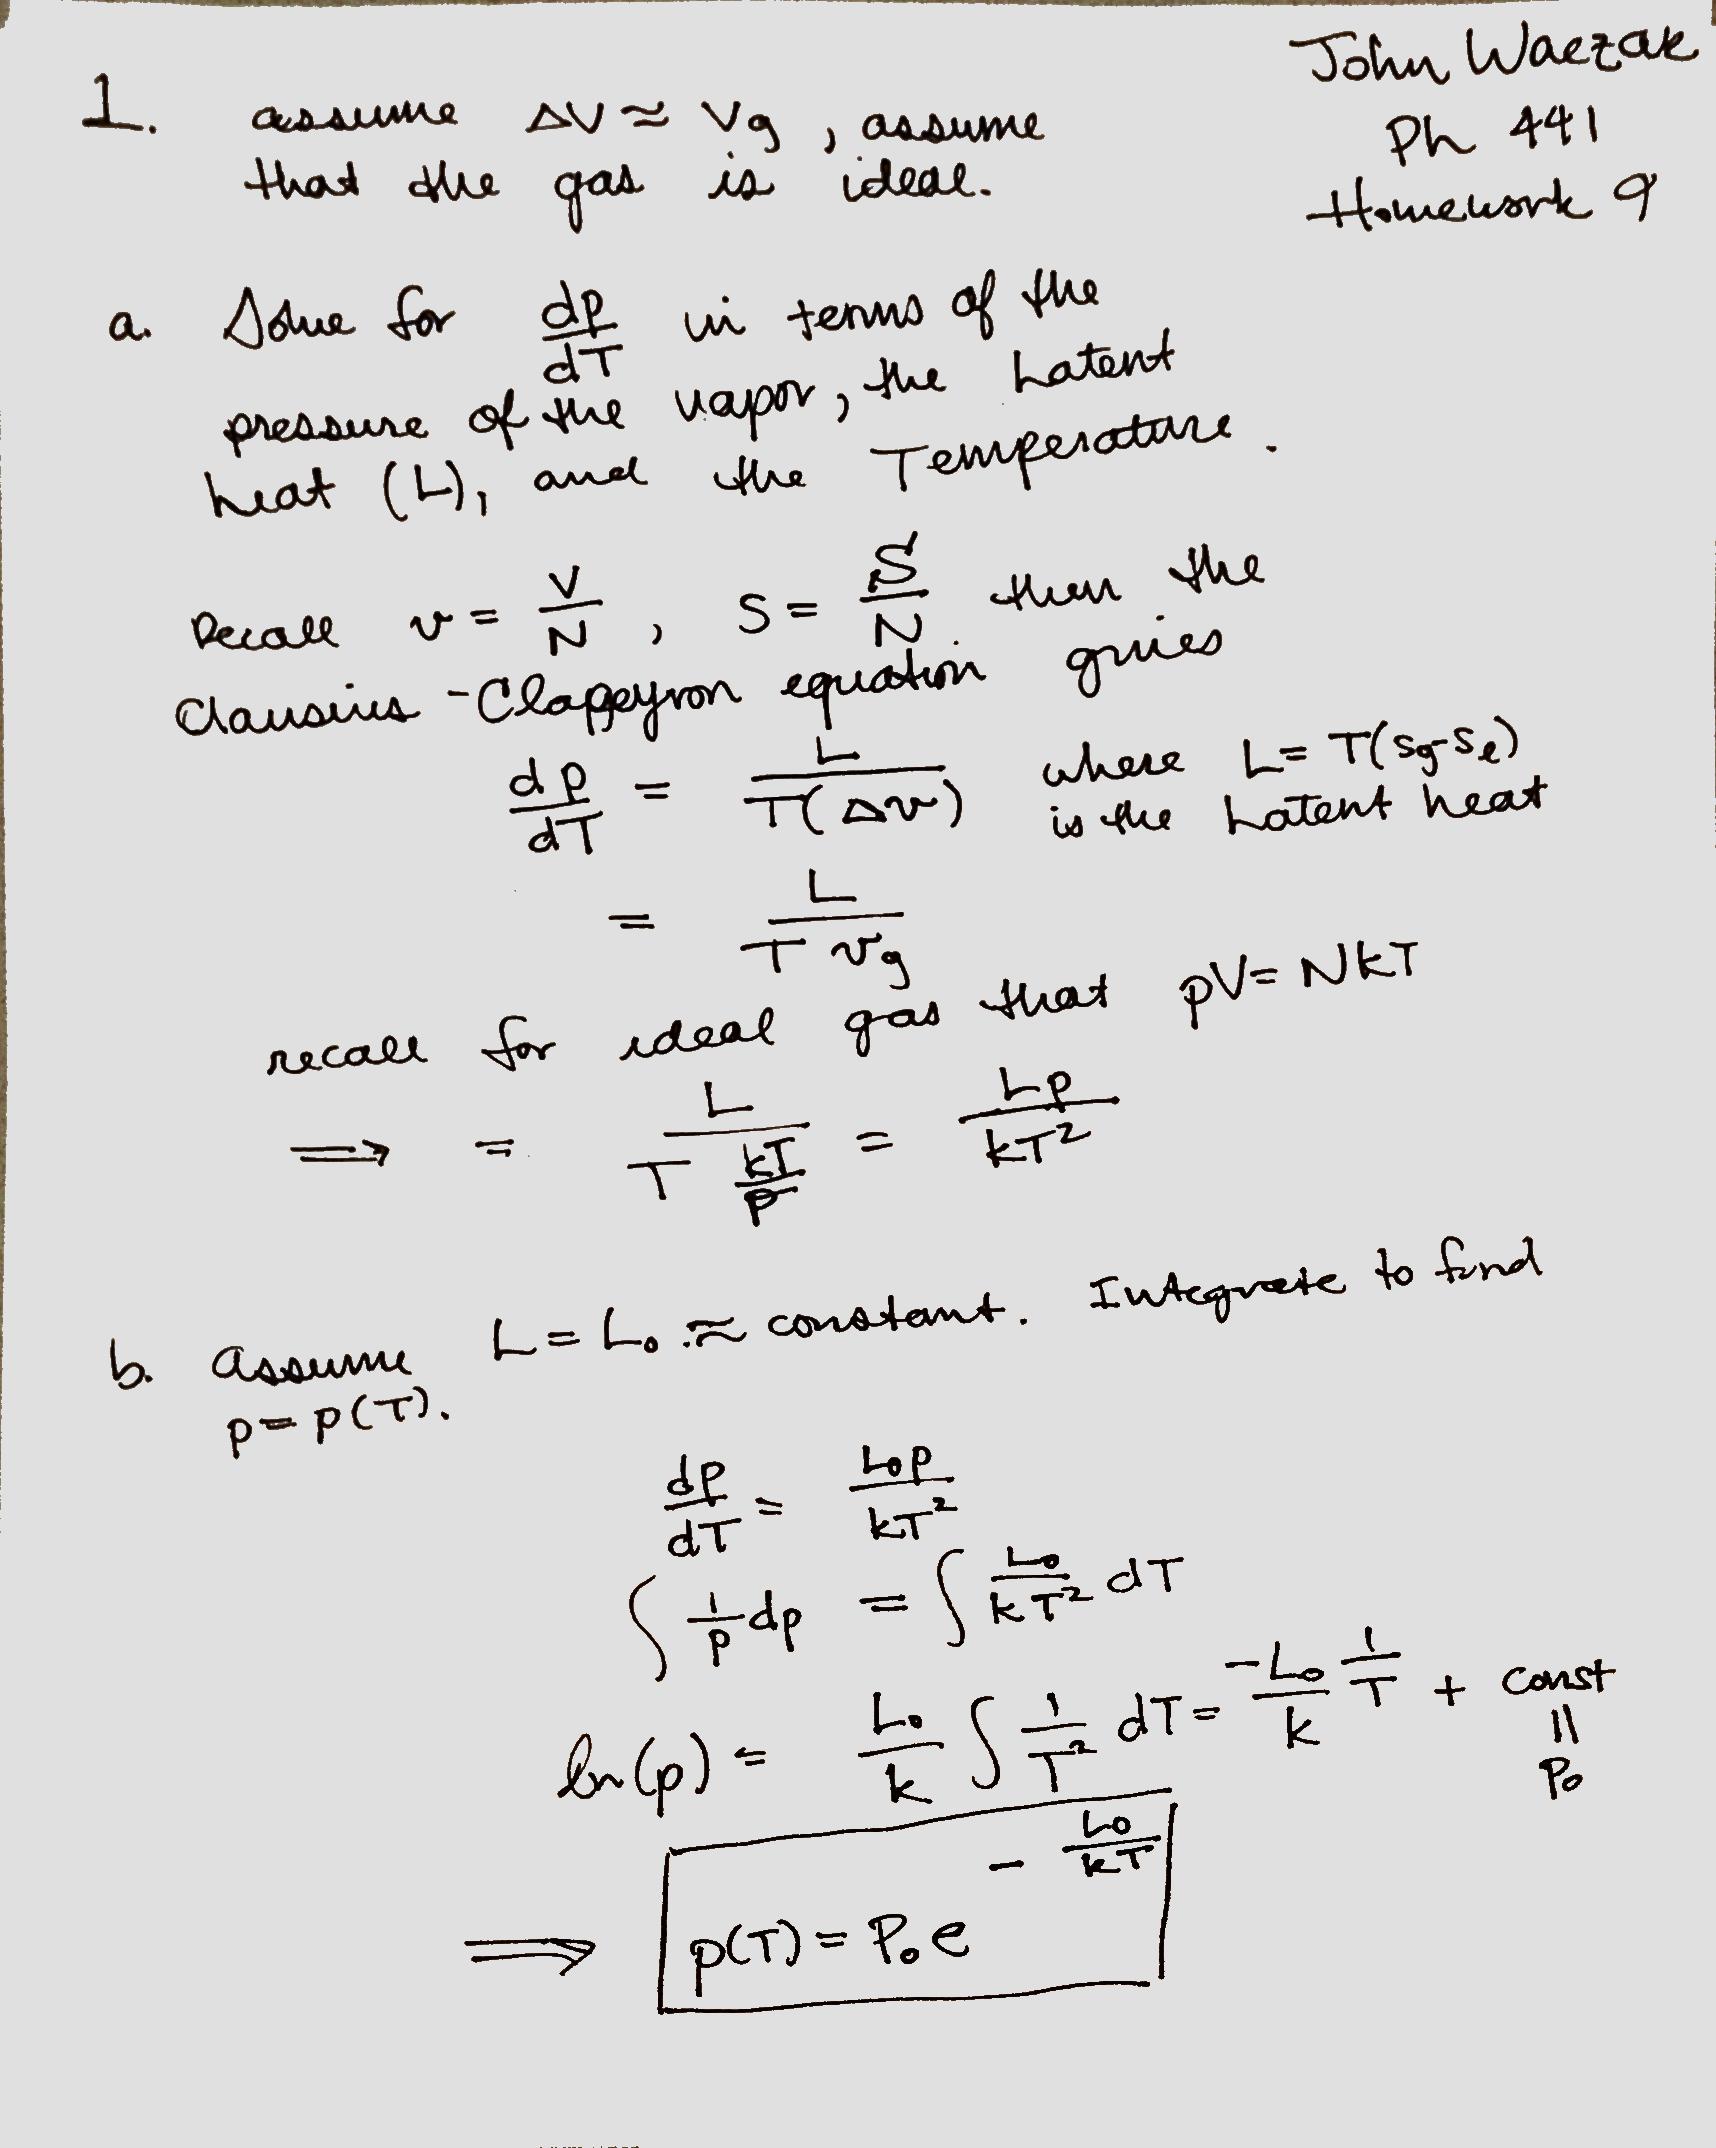 John Waczak
Ph 441
Homework 9
1. assume ΔV ≈ Vg , assume
that the gas is ideal.
a. Solve for dp/dT in terms of the
pressure of the vapor, the Latent
heat (L), and the Temperature.
Recall v = V/N , s = S/N then the
Clausius-Clapeyron equation gives
dp/dT = L/T(Δv) where L = T(sg-sl)
is the Latent heat
= L/T vg
recall for ideal gas that pV = NkT
⟹ = L/(T kT/p) = Lp/kT²
b. assume L = L₀ ≈ constant. Integrate to find
p = p(T).
dp/dT = L₀p/kT²
∫ 1/p dp = ∫ L₀/kT² dT
ln(p) = L₀/k ∫ 1/T² dT = -L₀/k 1/T + const
||
P₀
⟹ p(T) = P₀ e^(- L₀/kT)